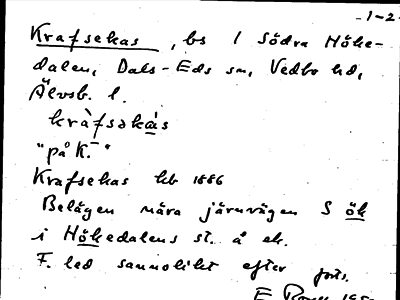 1-2
Krafsekas, bs I Södra Höke-
dalen, Dals-Eds sn, Vedbo hd,
Älvsb. l.
kràfsəkás
"på K.-"
Krafsekas kb 1886
Belägen nära järnvägen S ök
i Hökedalens st. å ek.
F. led sannolikt efter
E